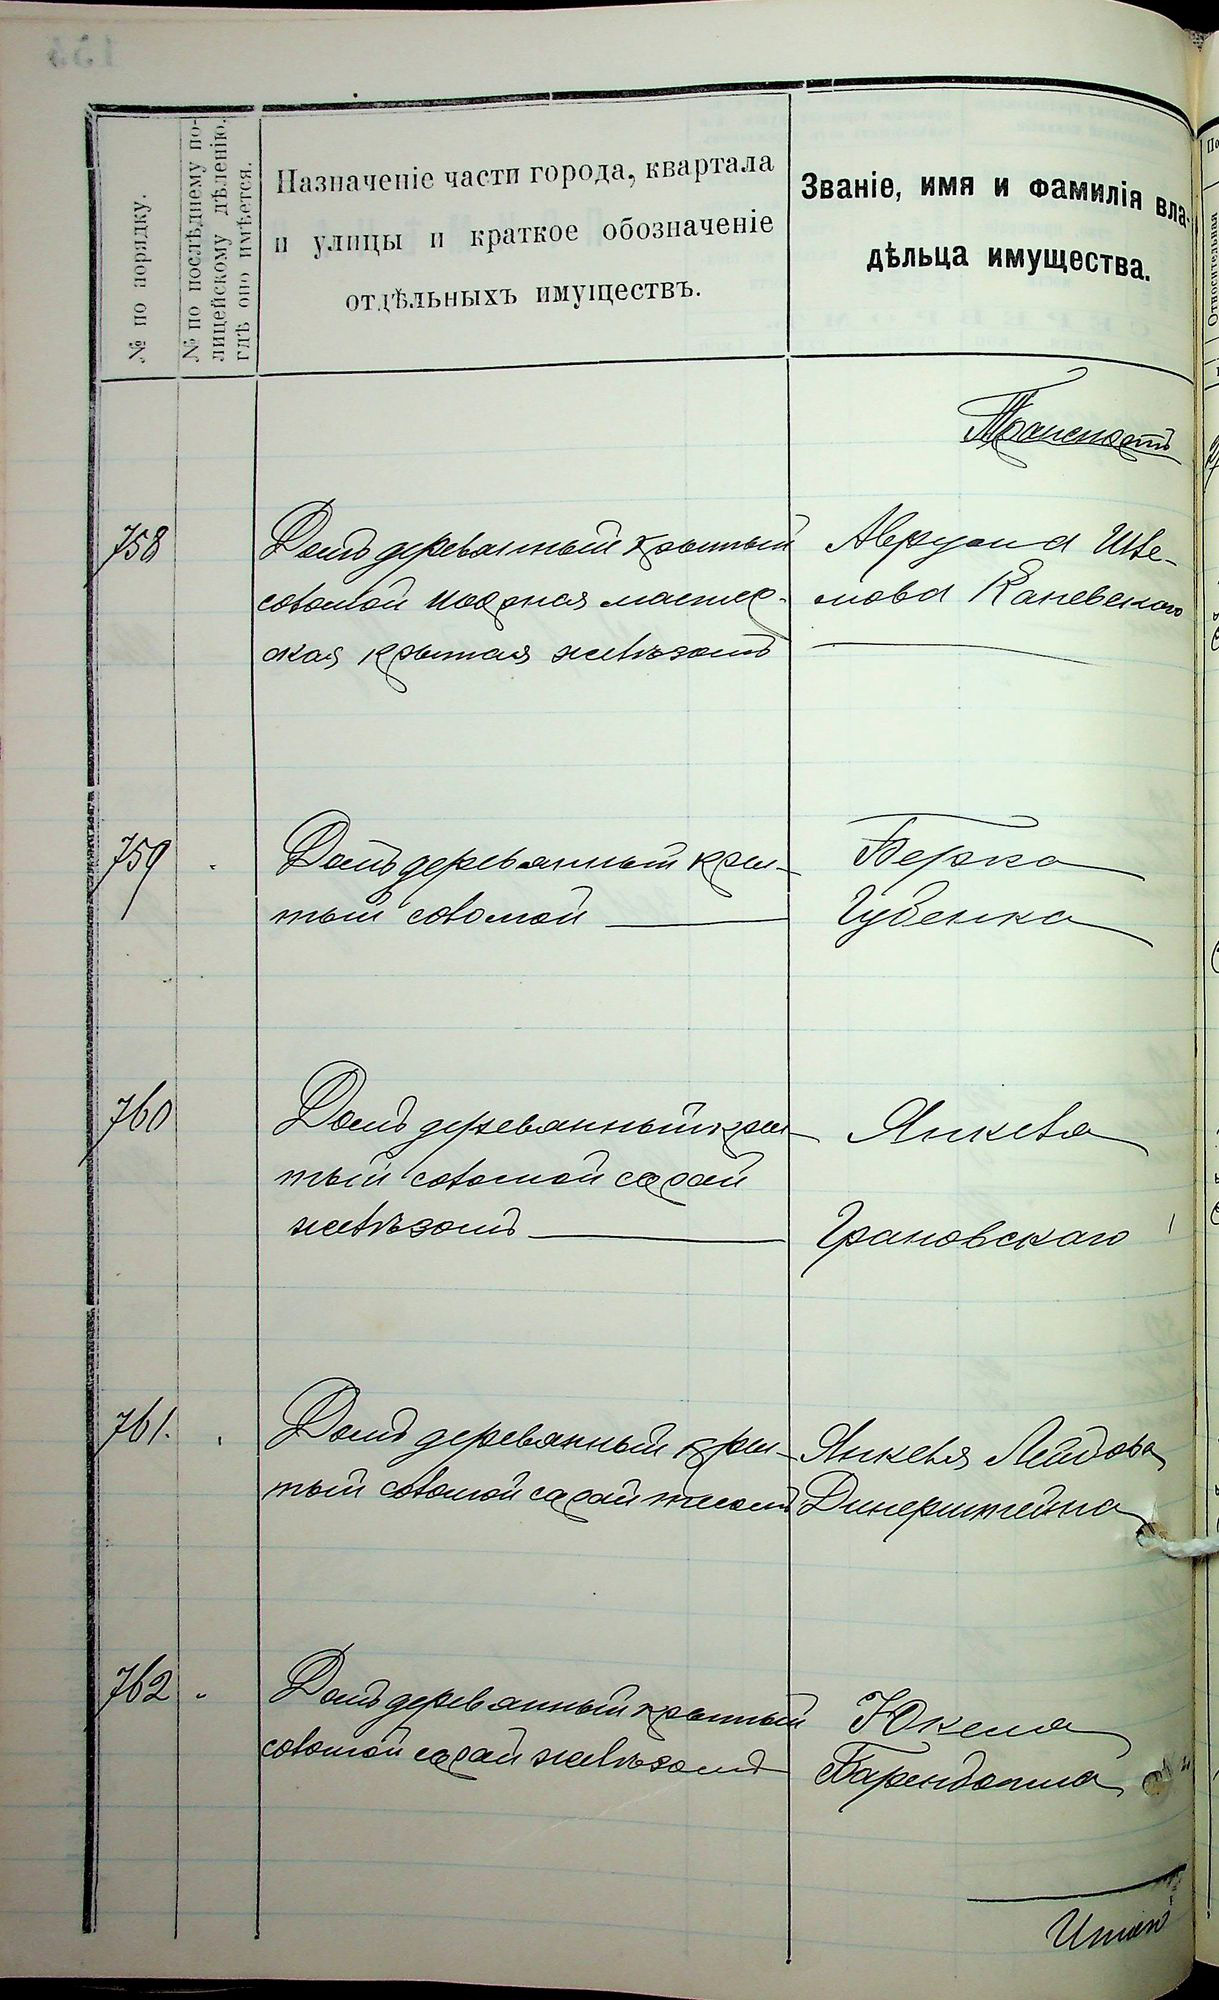 № по порядку.
№ по послѣднему по-
лицейскому дѣленію,
гдѣ оно имѣется.
Назначеніе части города, квартала
и улицы и краткое обозначеніе
отдѣльныхъ имуществъ.
Званіе, имя и фамилія вла-
дѣльца имущества.
Транспортъ
758
Домъ деревянный крытый
соломой
крытая желѣзомъ
Каневскаго
759
Домъ деревянный кры-
тый соломой
Берка
Губенка
760
Домъ деревянный кры-
тый соломой сарай
желѣзомъ
Янкеля
Грановскаго
761.
Домъ деревянный кры-
тый соломой сарай тесомъ
Янкеля Лейдова
Динерштейна
762
Домъ деревянный крытый
соломой сарай желѣзомъ
Юкеля
Итого